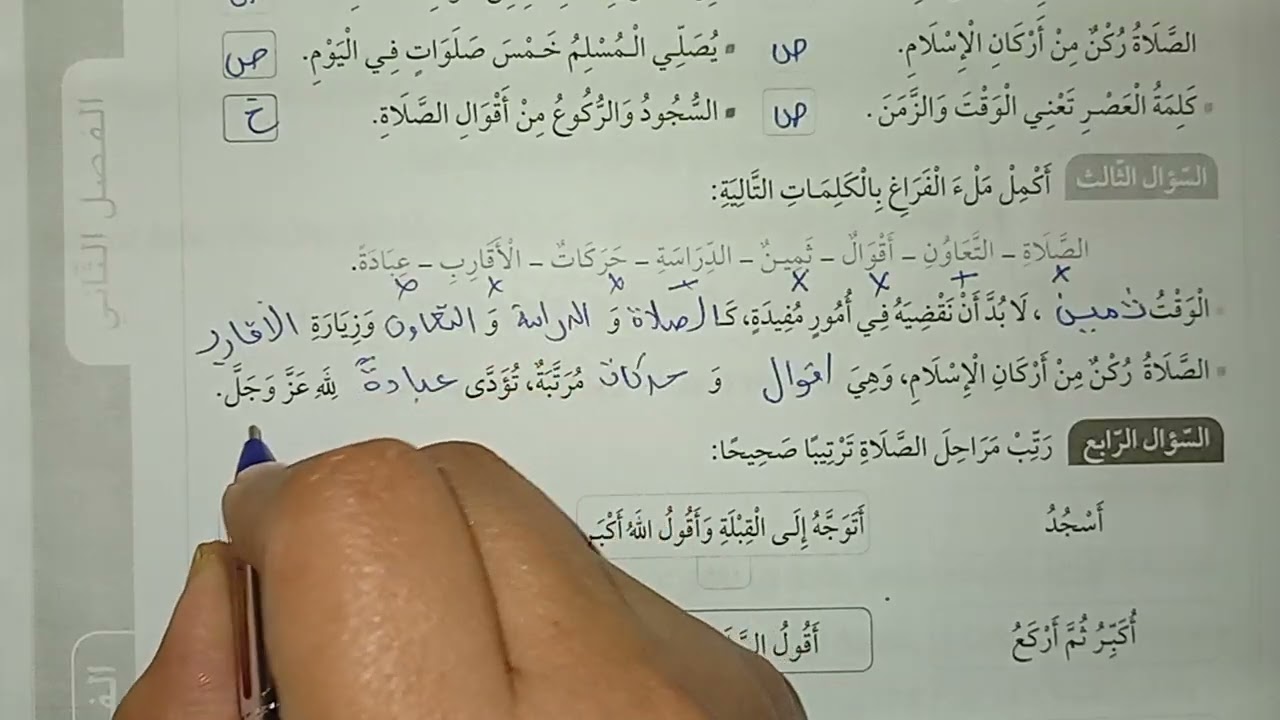 الصَّلَاةُ رُكْنٌ مِنْ أَرْكَانِ الْإِسْلَامِ. ص
▪ يُصَلِّي الْمُسْلِمُ خَمْسَ صَلَوَاتٍ فِي الْيَوْمِ. ص
▪ كَلِمَةُ الْعَصْرِ تَعْنِي الْوَقْتَ وَالزَّمَنَ. ص
▪ السُّجُودُ وَالرُّكُوعُ مِنْ أَقْوَالِ الصَّلَاةِ. خ
السّؤال الثّالث أَكْمِلْ مَلْءَ الْفَرَاغِ بِالْكَلِمَاتِ التَّالِيَةِ:
الصَّلَاةِ - التَّعَاوُنِ - أَقْوَالٌ - ثَمِينٌ - الدِّرَاسَةِ - حَرَكَاتٌ - الْأَقَارِبِ - عِبَادَةً.
▪ الْوَقْتُ ثمين، لَا بُدَّ أَنْ نَقْضِيَهُ فِي أُمُورٍ مُفِيدَةٍ، كَالصلاة وَ الدراسة وَ التعاون وَزِيَارَةِ الاقارب
▪ الصَّلَاةُ رُكْنٌ مِنْ أَرْكَانِ الْإِسْلَامِ، وَهِيَ اقوال وَ حركات مُرَتَّبَةٌ، تُؤَدَّى عبادةً لِلهِ عَزَّ وَجَلَّ.
السّؤال الرّابع رَتِّبْ مَرَاحِلَ الصَّلَاةِ تَرْتِيبًا صَحِيحًا:
أَسْجُدُ
أَتَوَجَّهُ إِلَى الْقِبْلَةِ وَأَقُولُ اللهُ أَكْبَر
أُكَبِّرُ ثُمَّ أَرْكَعُ
أَقُولُ
الفصل الثّاني